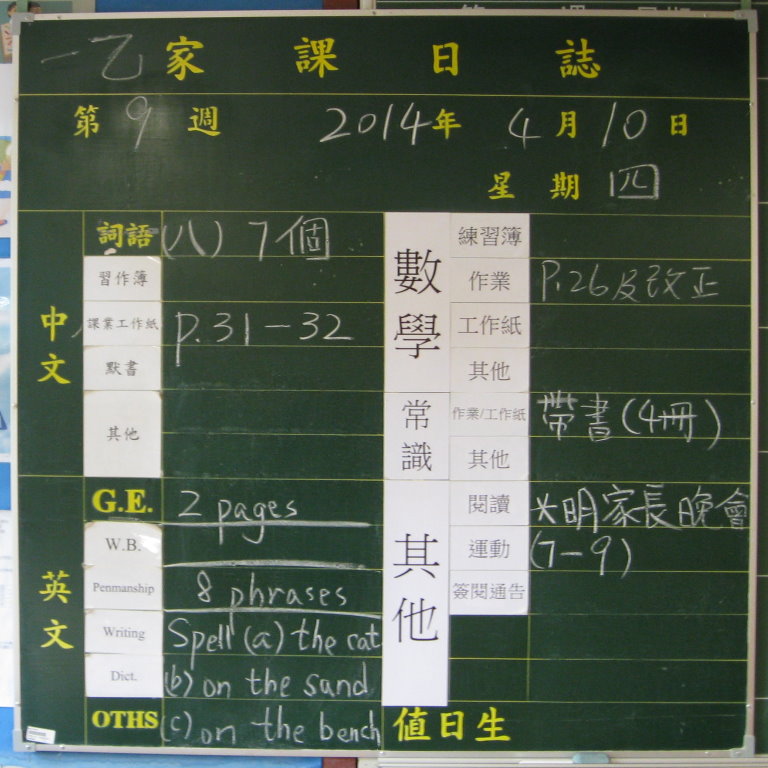 一乙家課日誌
第9週 2014年4月10日
星期四
中文
詞語 (八) 7個
習作簿
課業工作紙 p.31-32
默書
其他
英文
G.E. 2 pages
W.B.
Penmanship 8 phrases
Writing Spell (a) the cat
Dict. (b) on the sand
OTHS (c) on the bench
數學
練習簿
作業 P.26及改正
工作紙
其他
常識
作業/工作紙 帶書(4冊)
其他
其他
閱讀 光明家長晚會
運動 (7-9)
簽閱通告
值日生